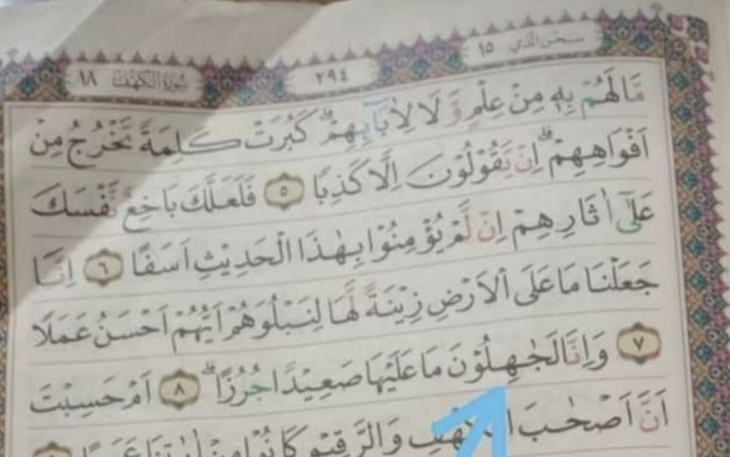 سبحن الذي ١٥
٢٩٤
سورة الكهف ١٨
مَالَهُمْ بِهٖ مِنْ عِلْمٍ وَّلَا لِاٰبَآىِٕهِمْۗ كَبُرَتْ كَلِمَةً تَخْرُجُ مِنْ
اَفْوَاهِهِمْۗ اِنْ يَّقُوْلُوْنَ اِلَّا كَذِبًا ٥ فَلَعَلَّكَ بَاخِعٌ نَّفْسَكَ
عَلٰٓى اٰثَارِهِمْ اِنْ لَّمْ يُؤْمِنُوْا بِهٰذَا الْحَدِيْثِ اَسَفًا ٦ اِنَّا
جَعَلْنَا مَا عَلَى الْاَرْضِ زِيْنَةً لَّهَا لِنَبْلُوَهُمْ اَيُّهُمْ اَحْسَنُ عَمَلًا
٧ وَاِنَّا لَجٰهِلُوْنَ مَا عَلَيْهَا صَعِيْدًا جُرُزًاۗ ٨ اَمْ حَسِبْتَ
اَنَّ اَصْحٰبَ الْكَهْفِ وَالرَّقِيْمِ كَانُوْا مِنْ اٰيٰتِنَا عَجَبًا